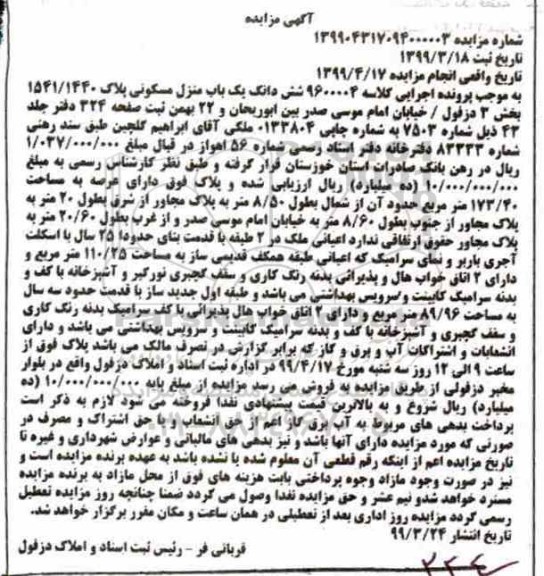 آگهی مزایده
شماره مزایده ۱۳۹۹۰۴۳۱۷۰۹۴۰۰۰۰۰۳
تاریخ ثبت ۱۳۹۹/۳/۱۸
تاریخ واقعی انجام مزایده ۱۳۹۹/۴/۱۷
به موجب پرونده اجرایی کلاسه ۹۶۰۰۰۰۴ شش دانگ یک باب منزل مسکونی پلاک ۱۵۴۱/۱۴۴۰
بخش ۳ دزفول / خیابان امام موسی صدر بین ابوریحان و ۲۲ بهمن ثبت صفحه ۳۲۴ دفتر جلد
۴۳ ذیل شماره ۷۵۰۳ به شماره چاپی ۰۱۳۳۸۰۴ ملکی آقای ابراهیم گلچین طبق سند رهنی
شماره ۸۳۳۳۳ دفترخانه دفتر اسناد رسمی شماره ۵۶ اهواز در قبال مبلغ ۱/۰۳۷/۰۰۰/۰۰۰
ریال در رهن بانک صادرات استان خوزستان قرار گرفته و طبق نظر کارشناس رسمی به مبلغ
۱۰/۰۰۰/۰۰۰/۰۰۰ (ده میلیارد) ریال ارزیابی شده و پلاک فوق دارای عرصه به مساحت
۱۷۳/۴۰ متر مربع حدود آن از شمال بطول ۸/۵۰ متر به پلاک مجاور از شرق بطول ۲۰ متر به
پلاک مجاور از جنوب بطول ۸/۶۰ متر به خیابان امام موسی صدر و از غرب بطول ۲۰/۶۰ متر به
پلاک مجاور حقوق ارتفاقی ندارد اعیانی ملک در ۲ طبقه با قدمت بنای حدودا ۲۵ سال با اسکلت
آجری باربر و نمای سرامیک که اعیانی طبقه همکف قدیمی ساز به مساحت ۱۱۰/۲۵ متر مربع و
دارای ۲ اتاق خواب هال و پذیرائی بدنه رنگ کاری و سقف گچبری نورگیر و آشپزخانه با کف و
بدنه سرامیک کابینت و سرویس بهداشتی می باشد و طبقه اول جدید ساز با قدمت حدود سه سال
به مساحت ۸۹/۹۶ متر مربع و دارای ۲ اتاق خواب هال پذیرائی با کف سرامیک بدنه رنگ کاری
و سقف گچبری و آشپزخانه با کف و بدنه سرامیک کابینت و سرویس بهداشتی می باشد و دارای
انشعابات و اشتراکات آب و برق و گاز که برابر گزارش در تصرف مالک می باشد پلاک فوق از
ساعت ۹ الی ۱۲ روز سه شنبه مورخ ۹۹/۴/۱۷ در اداره ثبت اسناد و املاک دزفول واقع در بلوار
مخبر دزفولی از طریق مزایده به فروش می رسد مزایده از مبلغ پایه ۱۰/۰۰۰/۰۰۰/۰۰۰ (ده
میلیارد) ریال شروع و به بالاترین قیمت پیشنهادی نقدا فروخته می شود لازم به ذکر است
پرداخت بدهی های مربوط به آب برق گاز اعم از حق انشعاب و یا حق اشتراک و مصرف در
صورتی که مورد مزایده دارای آنها باشد و نیز بدهی های مالیاتی و عوارض شهرداری و غیره تا
تاریخ مزایده اعم از اینکه رقم قطعی آن معلوم شده یا نشده باشد به عهده برنده مزایده است و
نیز در صورت وجود مازاد وجوه پرداختی بابت هزینه های فوق از محل مازاد به برنده مزایده
مسترد خواهد شدو نیم عشر و حق مزایده نقدا وصول می گردد ضمنا چنانچه روز مزایده تعطیل
رسمی گردد مزایده روز اداری بعد از تعطیلی در همان ساعت و مکان مقرر برگزار خواهد شد.
تاریخ انتشار ۹۹/۳/۲۴
قربانی فر - رئیس ثبت اسناد و املاک دزفول